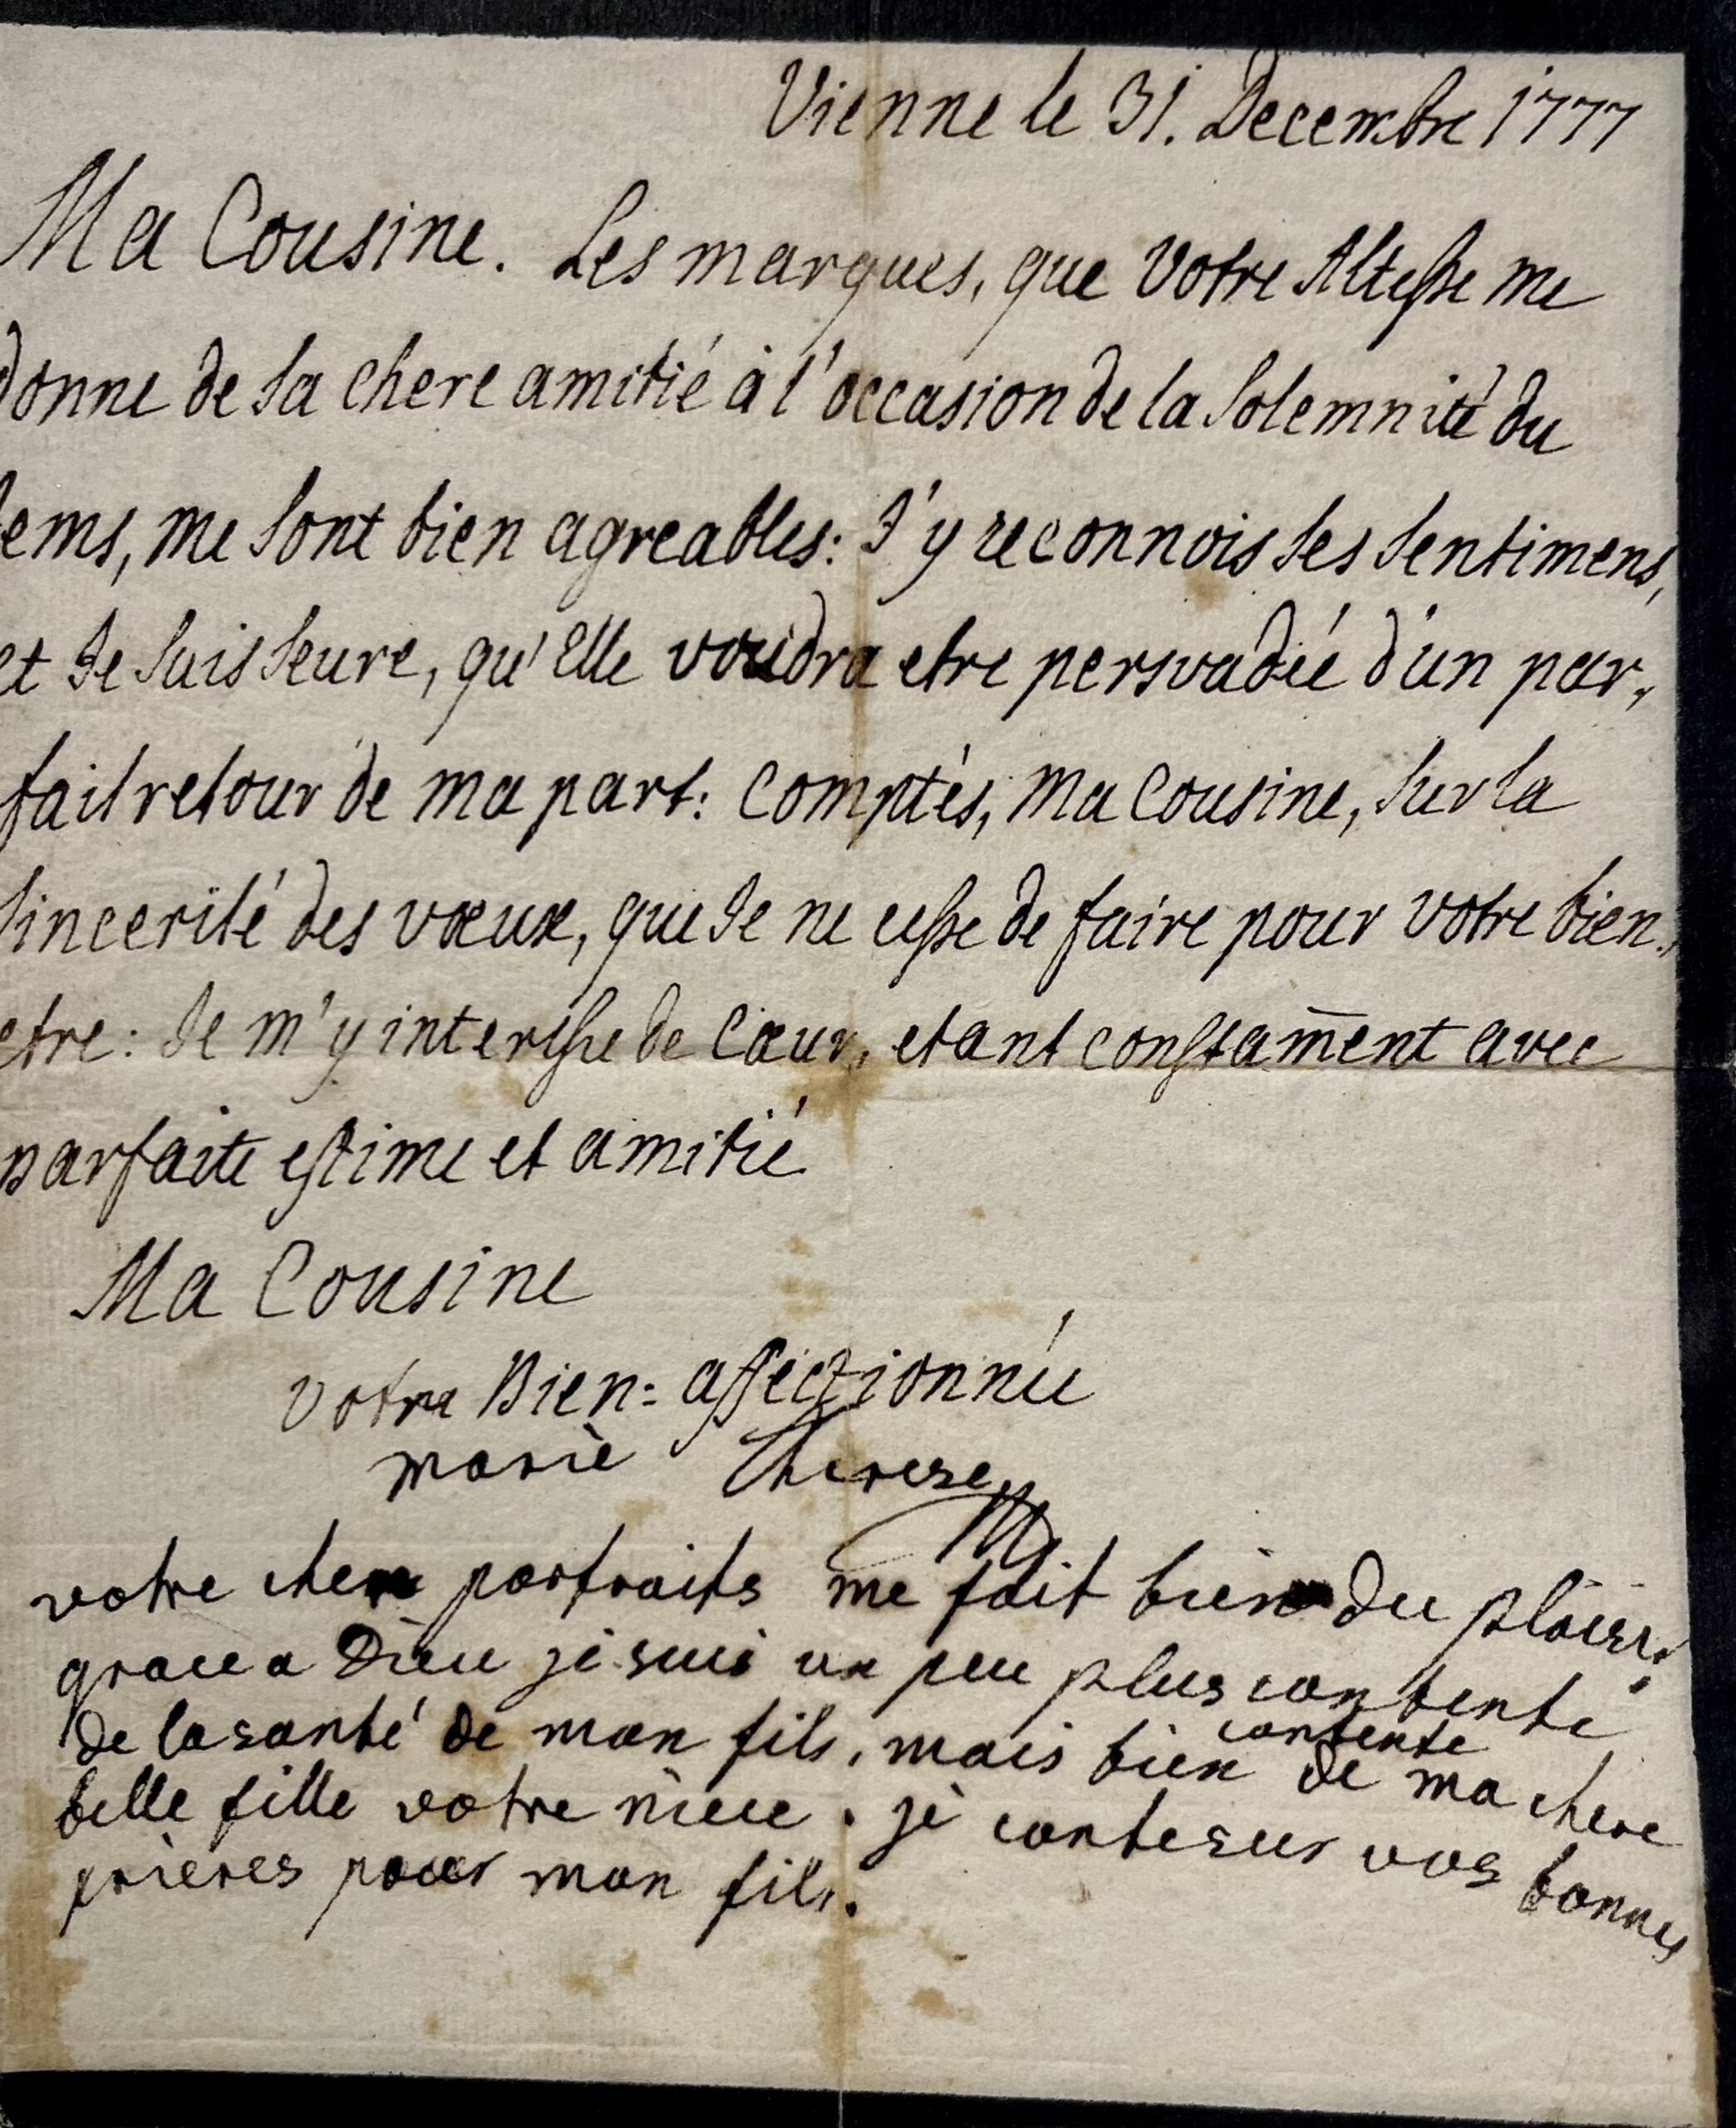 Vienne le 31. Decembre 1777
Ma Cousine. Les marques, que Votre Altesse me
donne de sa chere amitié à l'occasion de la Solemnité du
tems, me sont bien agreables: J'y reconnois ses sentimens,
et Je suis seure, qu'Elle voudra etre persvadée d'un par,
fait retour de ma part: Comptés, Ma Cousine, sur la
sincerité des vœux, que Je ne cesse de faire pour votre bien,
etre: Je m'y interesse de Cœur, etant constam̄ent avec
parfaite estime et amitié
Ma Cousine
votre Bien: affectionnée
marie Therese
votre chere portraits me fait bien du plaisir.
grace a Dieu je sui un peu plus contente
de la santé de mon fils, mais bien contente de ma chere
belle fille votre niece. je conte sur vos bonnes
prieres pour mon fils.